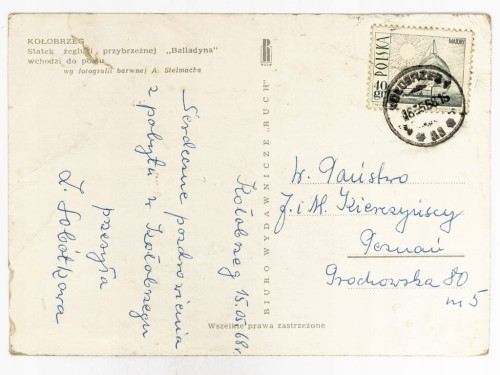 KOŁOBRZEG
Statek żeglugi przybrzeżnej „Balladyna”
wchodzi do portu
wg fotografii barwnej A. Stelmacha
Kołobrzeg 15.05.68r.
Serdeczne pozdrowienia
z pobytu w Kołobrzegu
przesyła
Z. Sobótkowa
BIURO WYDAWNICZE „RUCH”
Wszelkie prawa zastrzeżone
POLSKA
40 gr
KOŁOBRZEG 1
W. Państwo
J. i M. Kierczyńscy
Poznań
Grochowska 80
m 5